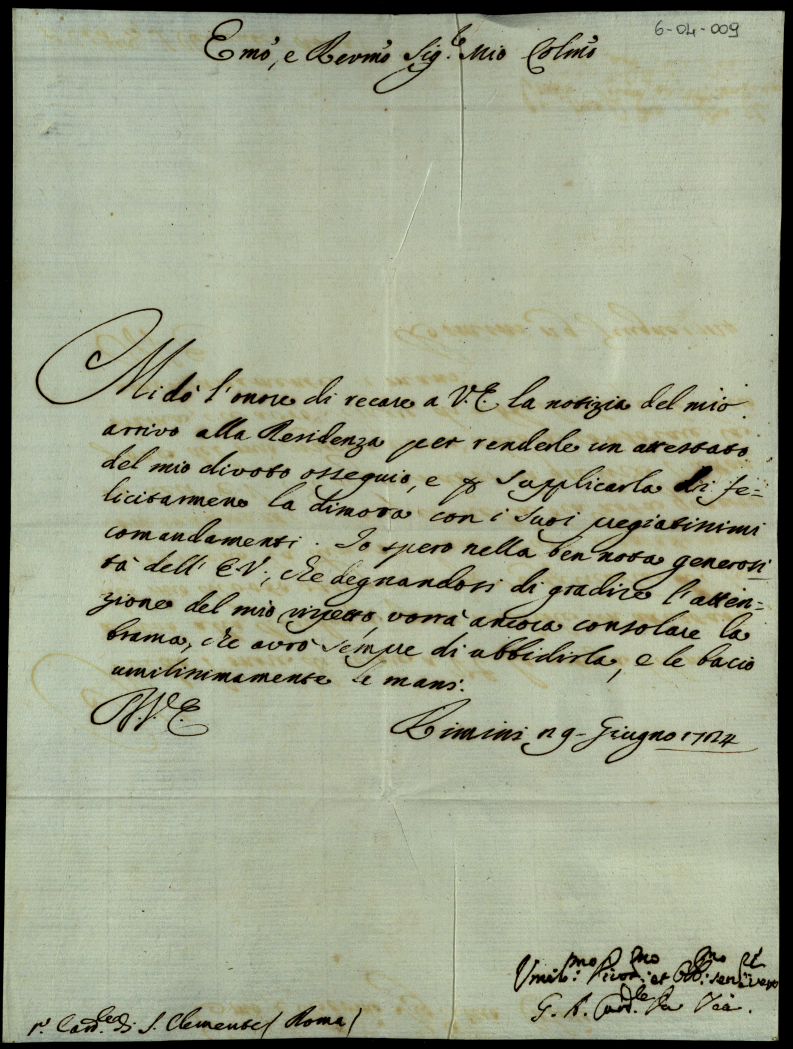 6-04-009
Emo, e Revmo Sig.re Mio Colmo
Mi do l'onore di recare a V.E. la notizia del mio
arrivo alla Residenza per renderle un attestato
del mio divoto ossequio, e p supplicarla di fe=
licitarmene la dimora con i suoi pregiatissimi
comandamenti. Io spero nella ben nota generosi
tà dell' E.V., che degnandosi di gradire l'atten=
zione del mio rispetto, vorrà ancora consolare la
brama, che avrò sempre di ubbidirla, e le bacio
umilissimamente le mani.
V.E.
Rimini 9 Giugno 1724
Umil.mo Divot.mo et Obb.mo Servi vero
G. A. Card.le Da Via.
S. Clemente / Roma /